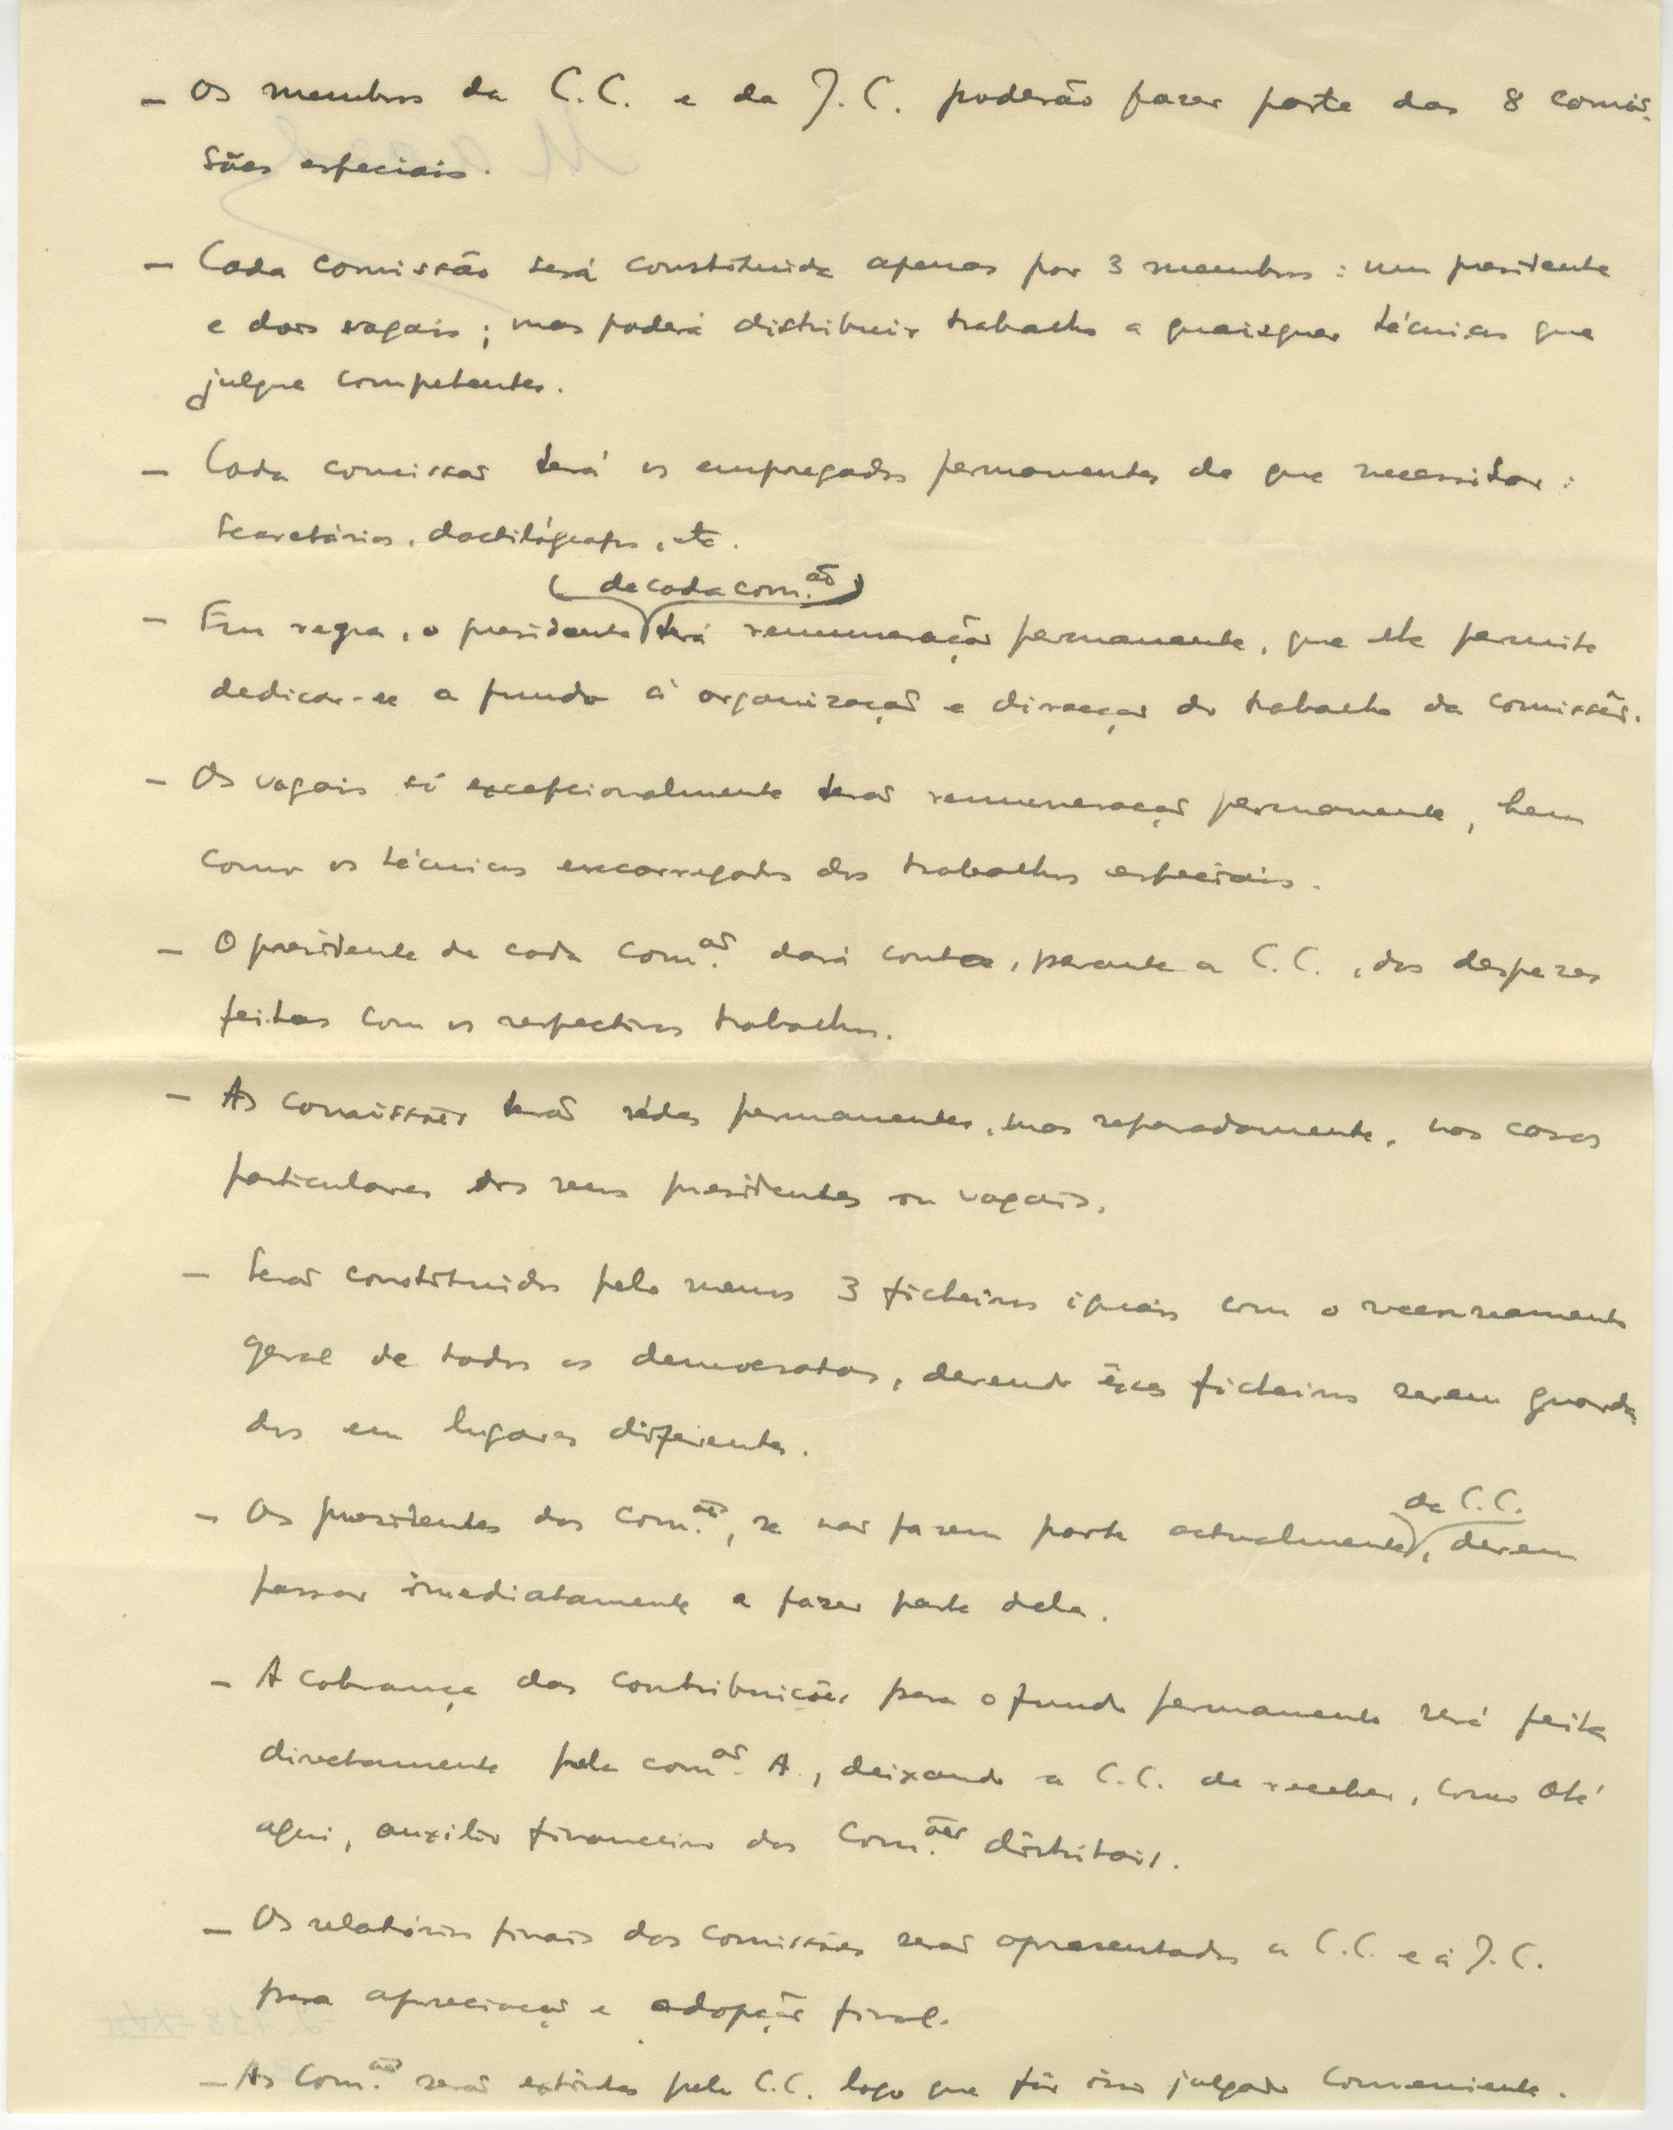 - Os membros da C.C. e da J.C. poderão fazer parte das 8 comis-
sões especiais.
- Cada comissão será constituida apenas por 3 membros: um presidente
e dois vogais; mas poderá distribuir trabalho a quaisquer técnicos que
julgue competentes.
- Cada comissão terá os empregados permanentes de que necessitar:
secretários, dactilógrafos, etc.
(de cada com.ão)
- Em regra, o presidente terá remuneração permanente, que lhe permita
dedicar-se a fundo à organização e direcção do trabalho da comissão.
- Os vogais só excepcionalmente terão remuneração permanente, bem
como os técnicos encarregados dos trabalhos especiais.
- O presidente de cada com.ão dará contas, perante a C.C., das despezas
feitas com os respectivos trabalhos.
- As comissões terão sédes permanentes, mas separadamente, nas casas
particulares dos seus presidentes ou vogais.
- Serão constituidos pelo menos 3 ficheiros iguais com o recenseamento
geral de todos os democratas, devendo êsses ficheiros serem guarda-
dos em lugares diferentes.
da C.C.
- Os presidentes das com.ões, se não fazem parte actualmente, devem
passar imediatamente a fazer parte dela.
- A cobrança das contribuições para o fundo permanente será feita
directamente pela com.ão A, deixando a C.C. de receber, como até
aqui, auxilio financeiro das Com.ões distritais.
- Os relatórios finais das comissões serão apresentados à C.C. e à J.C.
para apreciação e adopção final.
- As Com.ões serão extintas pela C.C. logo que fôr isso julgado conveniente.